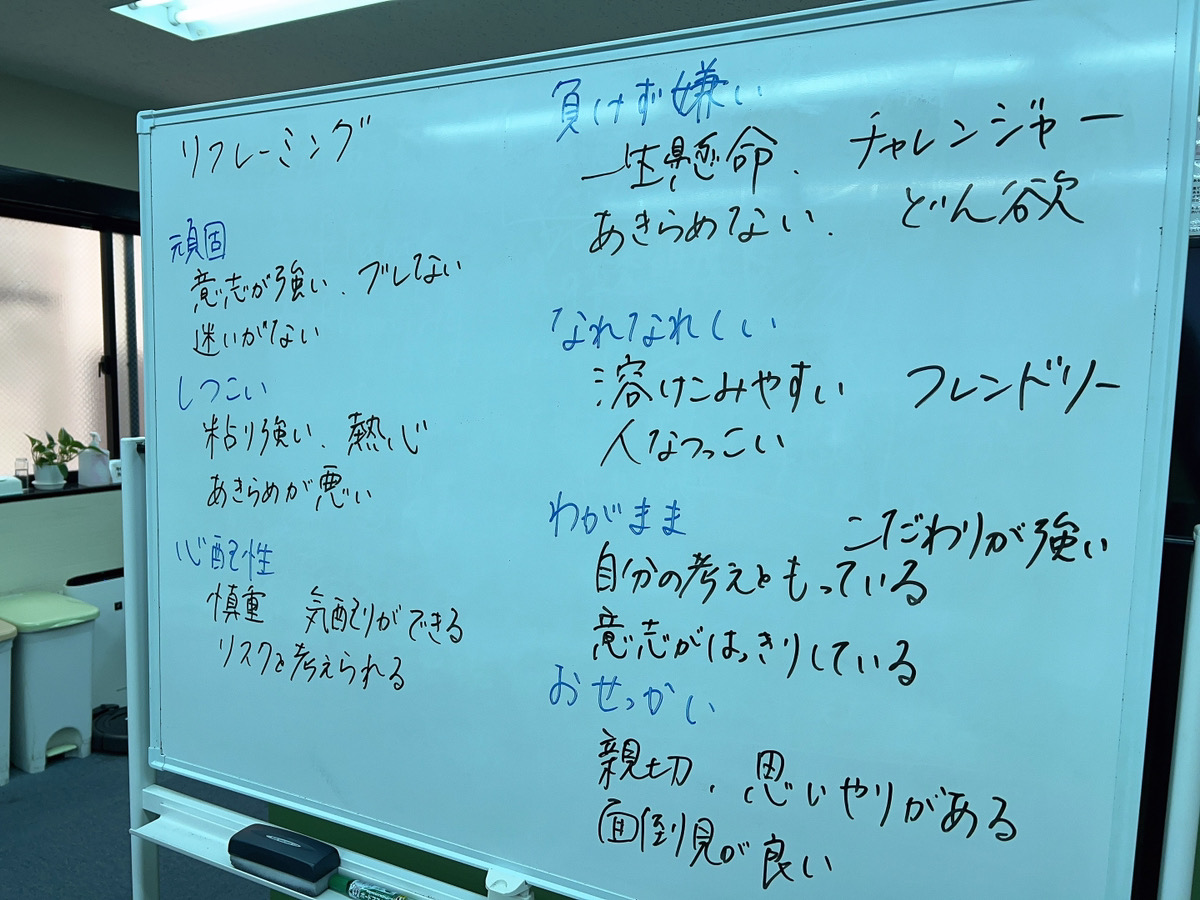 リフレーミング
頑固
意志が強い、ブレない
迷いがない
しつこい
粘り強い、熱心
あきらめが悪い
心配性
慎重 気配りができる
リスクを考えられる
負けず嫌い
一生懸命、 チャレンジャー
あきらめない、 どん欲
なれなれしい
溶けこみやすい フレンドリー
人なつっこい
わがまま
こだわりが強い
自分の考えをもっている
意志がはっきりしている
おせっかい
親切、思いやりがある
面倒見が良い